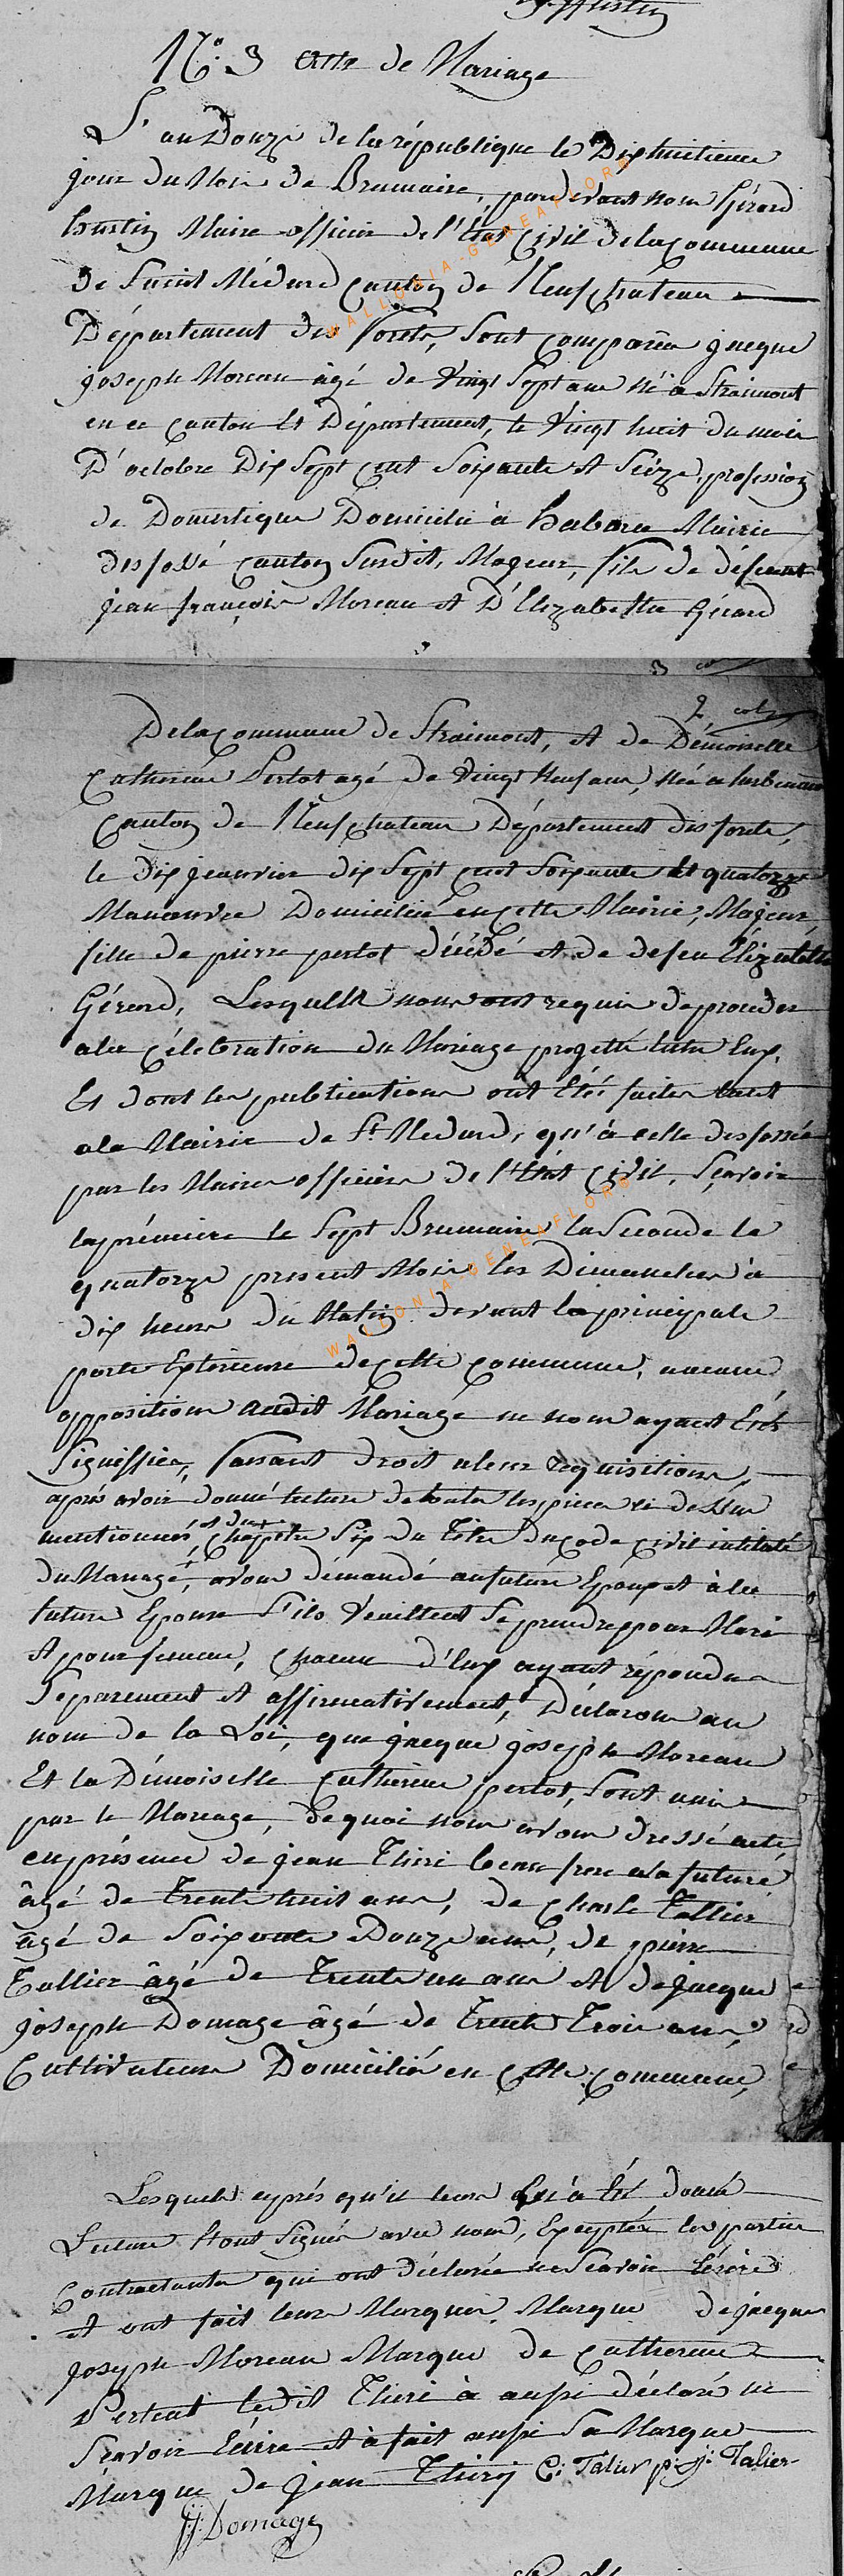 N.° 3 Acte de Mariage
L'an Douze de la république le Dixhuitieme
jour du Mois de Brumaire, pardevant nous Gérard
hustin Maire officier de l'Etat Civil de la commune
de Saint Médard Canton de Neufchateau
Département des forets, sont comparus jacque
joseph Moreau âgé de vingt sept ans né a Straimont
en ce canton et Département, le vingt huit du mois
D'octobre Dix sept cent soixante et seize, profession
de Domestique Domicilié à habaru Mairie
desfossé canton susdit, Majeur, fils de défeunt
jean françois Moreau et D'Elizabethe Gérard
De la commune de Straimont, et de Démoiselle
Catherine Pertot agé de vingt Neuf ans, Née a
Canton de Neufchateau Département des forets,
le dix jeanvier dix sept cent soixante et quatorze
Manouvrée Domiciliée en cette Mairie, Majeur,
fille de pierre pertot décédé et de defeu Elizabette
Gérard, Lesquelle nous ont requis de proceder
a la Célébration du Mariage projetté entre Eux.
Et dont les publications ont Étés faites tant
ala Mairie de St Medard, qu'à celle desfossés
par les Maires officiers de l'Etat Civil, Sçavoir
la prémiere le sept Brumaire la Seconde le
quatorze present Mois les Dimanches à
dix heures du Matin devant la principale
porte Exterieure de cette commune, aucune
opposition audit Mariage ne nous ayant Etés
Signiffiée, faisant droit aleur requisitions,
aprés avoir donné lecture de toutes les pieces ci dessus
mentionnés, et du Chapitre Six du Titre du code civil intitulé
du Mariage, avons démandé au futur Epoux et à la
future Epouse s'ils veuillent se prendre pour Mari
et pour femme, chacun d'Eux ayant répondu
Séparement et affirmativement, Déclarons au
nom de la Loi, que jacque joseph Moreau
Et la Démoiselle Catherine pertot, sont unis
par le Mariage, de quoi nous avons dressé acte,
en présence de jean Thiri beau frere ala future
âgé de Trente huit ans, de Charle Tallier
agé de Soixante Douze ans, de pierre
Tallier âgé de Trente un ans et de jacque
joseph Domage âgé de Trente Trois ans,
Cultivateurs Domiciliés en cette commune,
Lesquels aprés qu'il leurs en à été donné
Lecture l'ont Signés avec nous, Exceptés les parties
Contractantes qui ont déclarés ne Scavoir Écrire
et ont fait leurs Marques. Marque de jacque
joseph Moreau Marque de Catherine
Pertout ledit Thiri à aussi déclaré ne
Scavoir Écrire et à fait aussi sa Marque
Marque de jean Thirÿ C: Talier p: j: Talier
jj: Domage
WALLONIA-GENEAFLORE
WALLONIA-GENEAFLORE